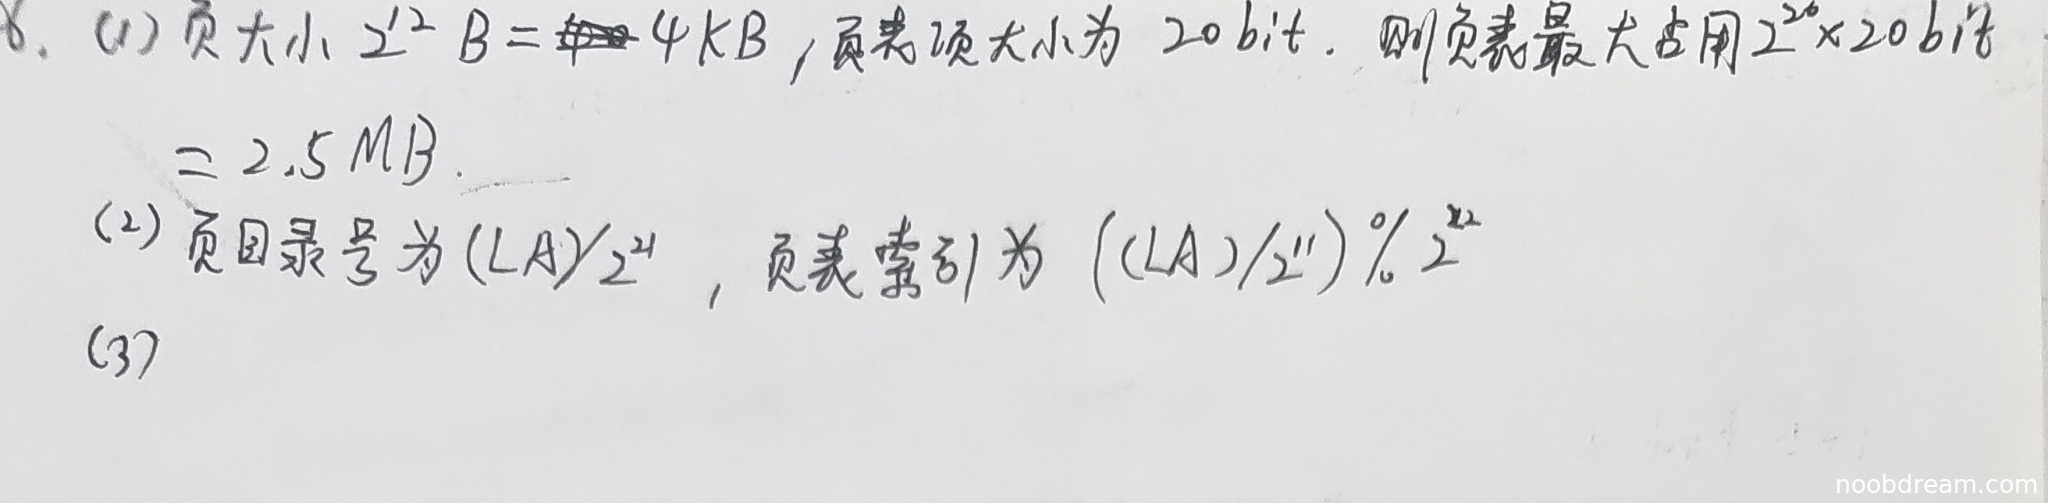 8. (1) 页大小 2^12 B = 4KB, 页表项大小为 20bit. 则页表最大占用 2^20 × 20bit
= 2.5MB.
(2) 页目录号为 (LA)/2^21, 页表索引为 ((LA)/2^11) %
(3)
noobdream.com